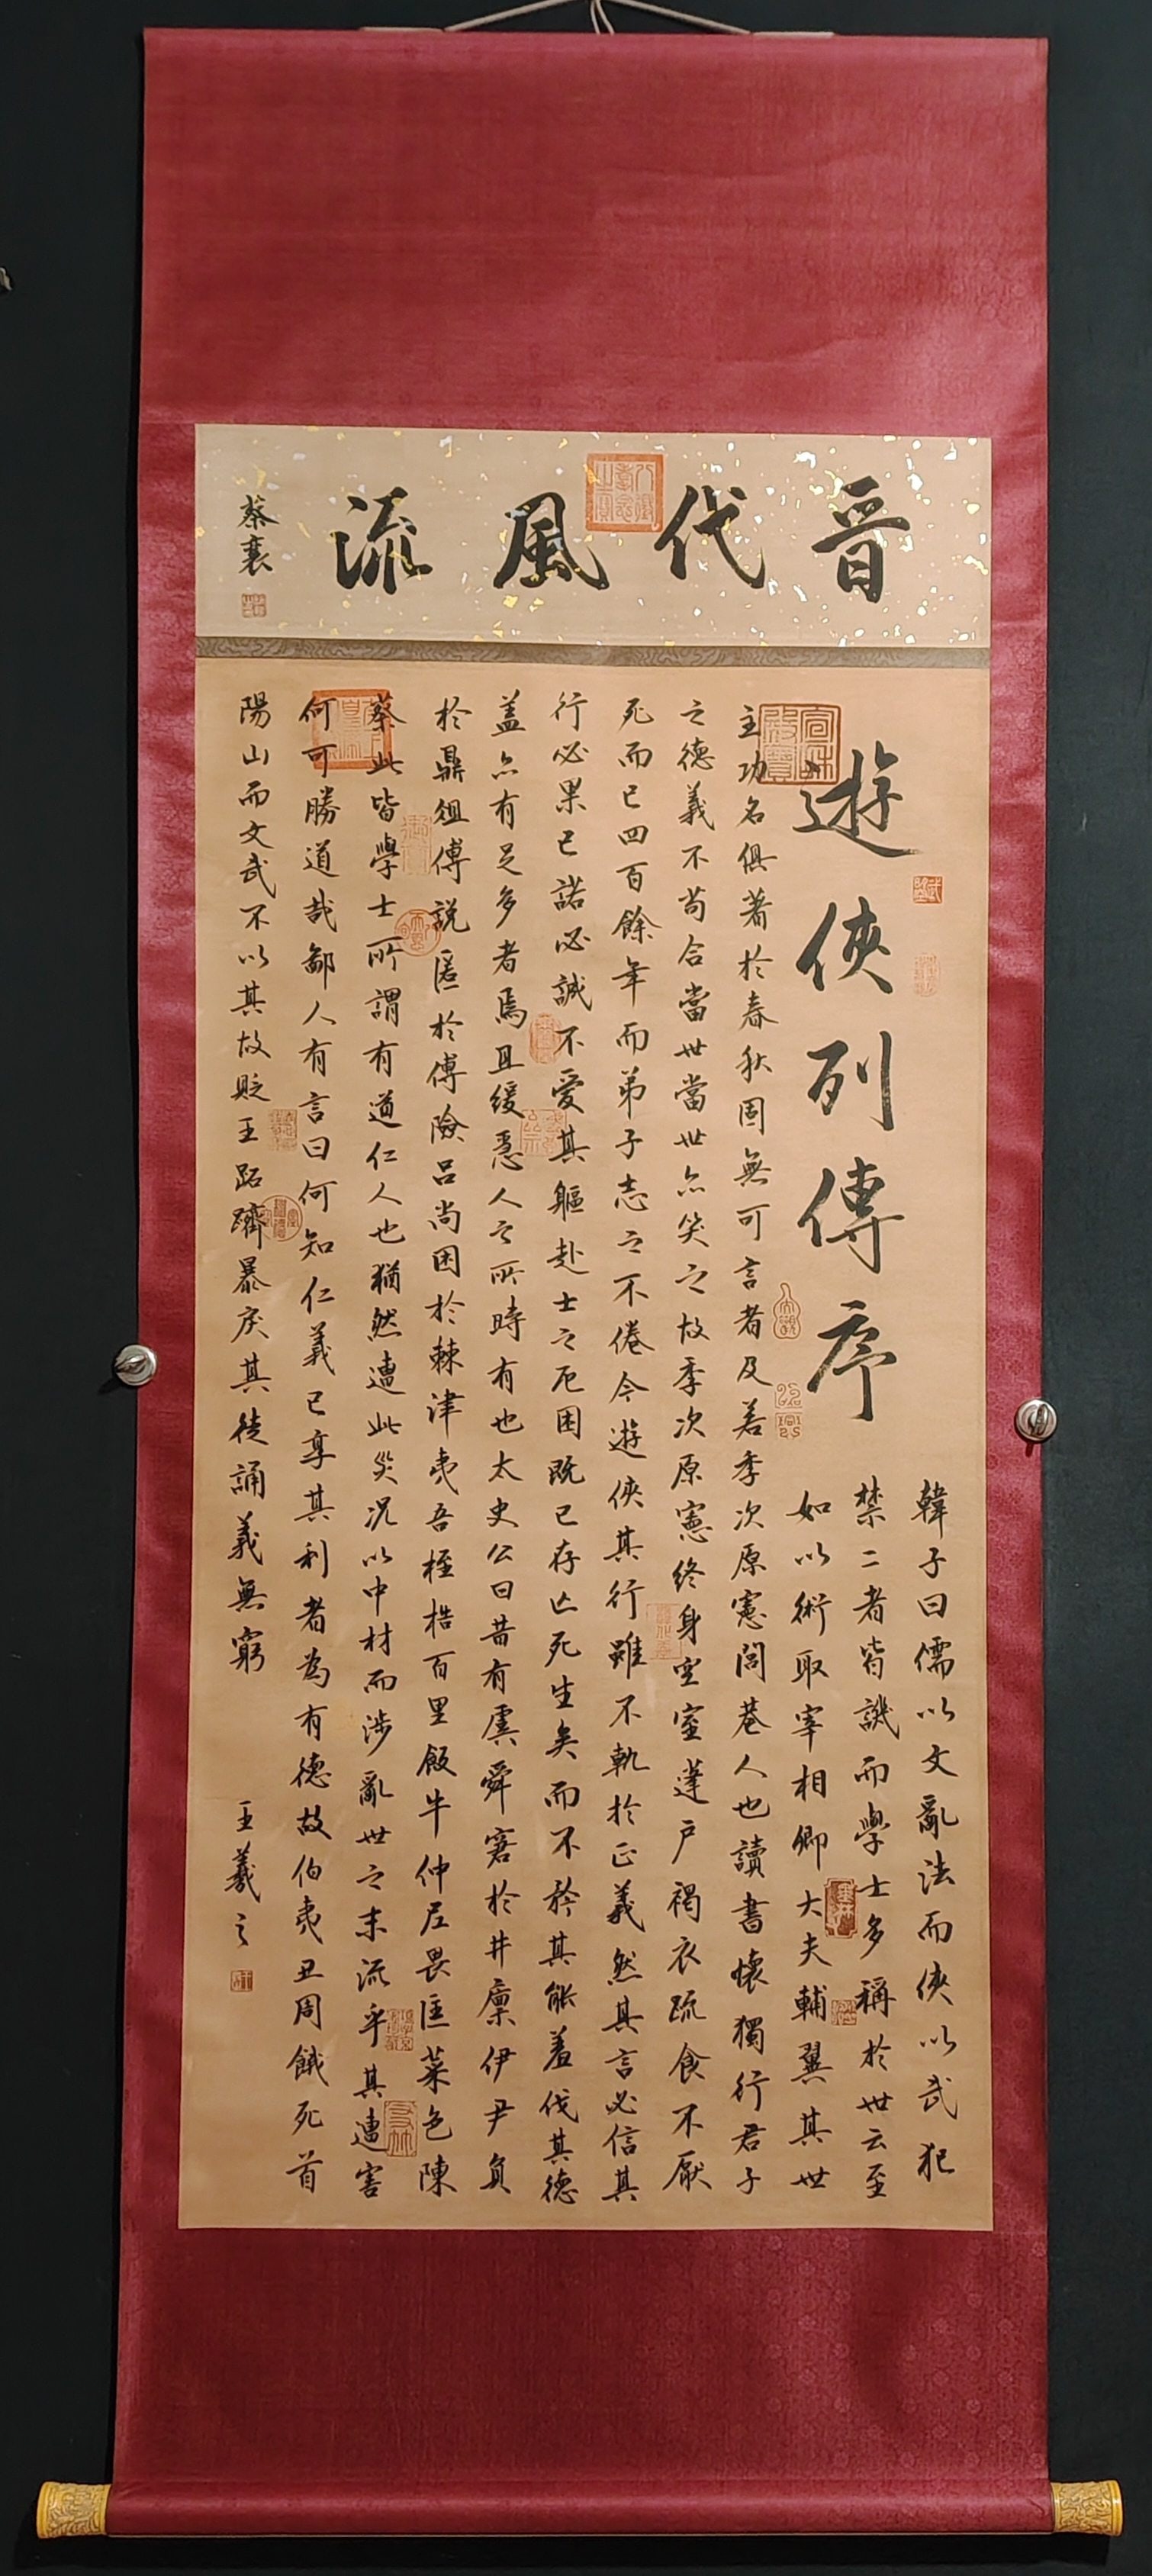 晋代風流
蔡襄
遊俠列傳序
韓子曰儒以文亂法而俠以武犯
禁二者皆譏而學士多稱於世云至
如以術取宰相卿大夫輔翼其世
主功名俱著於春秋固無可言者及若季次原憲閭巷人也讀書懷獨行君子
之德義不苟合當世當世亦笑之故季次原憲終身空室蓬戶褐衣疏食不厭
死而已四百餘年而弟子志之不倦今遊俠其行雖不軌於正義然其言必信其
行必果已諾必誠不愛其軀赴士之厄困既已存亡死生矣而不矜其能羞伐其德
盖亦有足多者焉且緩急人之所時有也太史公曰昔者虞舜窘於井廩伊尹負
於鼎俎傅說匿於傅險呂尚困於棘津夷吾桎梏百里飯牛仲尼畏匡菜色陳
蔡此皆學士所謂有道仁人也猶然遭此災况以中材而涉亂世之末流乎其遭害
何可勝道哉鄙人有言曰何知仁義已享其利者為有德故伯夷丑周餓死首
陽山而文武不以其故貶王跖蹻暴戾其徒誦義無窮
王羲之